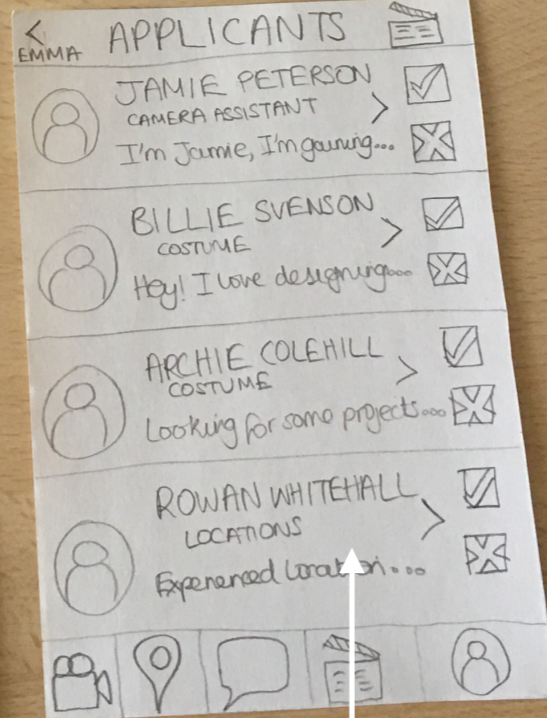 APPLICANTS
EMMA
JAMIE PETERSON
CAMERA ASSISTANT
I'm Jamie, I'm gaining...
BILLIE SVENSON
COSTUME
Hey! I love designing...
ARCHIE COLEHILL
COSTUME
Looking for some projects...
ROWAN WHITEHALL
LOCATIONS
Experienced Location...